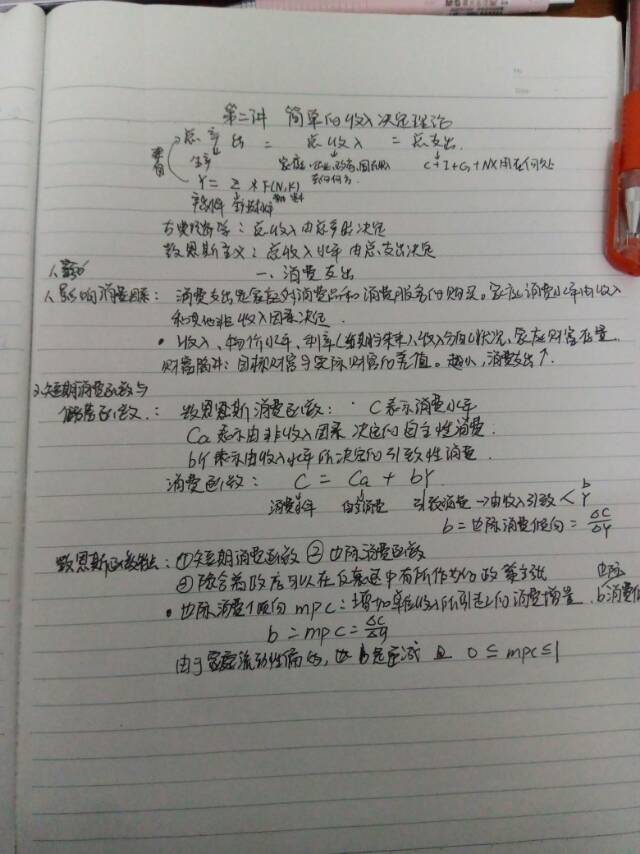 第二讲 简单的收入决定理论
总产出 = 总收入 = 总支出
生产 家庭、企业、政府、国外 C+I+G+NX用在何处
Y = Z * F(N,K)
古典经济学：总收入由总产出决定
凯恩斯主义：总收入水平由总支出决定
一、消费支出
1.影响消费因素： 消费支出是家庭对消费品和消费服务的购买。家庭消费水平由收入
和其他非收入因素决定.
• 收入、物价水平、利率、收入分配状况、家庭财富存量.
财富 目标财富与实际财富的差值。越小，消费支出↑.
2.短期消费函数与
储蓄函数.： 凯恩斯消费函数： C表示消费水平
Ca表示由非收入因素决定的自主性消费.
bY表示由收入水平所决定的引致性消费.
消费函数： C = Ca + bY
消费水平 自主消费 引致消费 →由收入引致 < b Y
b=边际消费倾向 = ΔC/ΔY
凯恩斯函数特点：①短期消费函数 ②边际消费函数
③隐含着政府可以在反衰退中有所作为的政策主张 边际
• 边际消费倾向 mpc：增加单位收入所引起的消费增量. b消费倾
b = mpc = ΔC/ΔY
由于 流动性偏好， b 递减 且 0 ≤ mpc ≤ 1